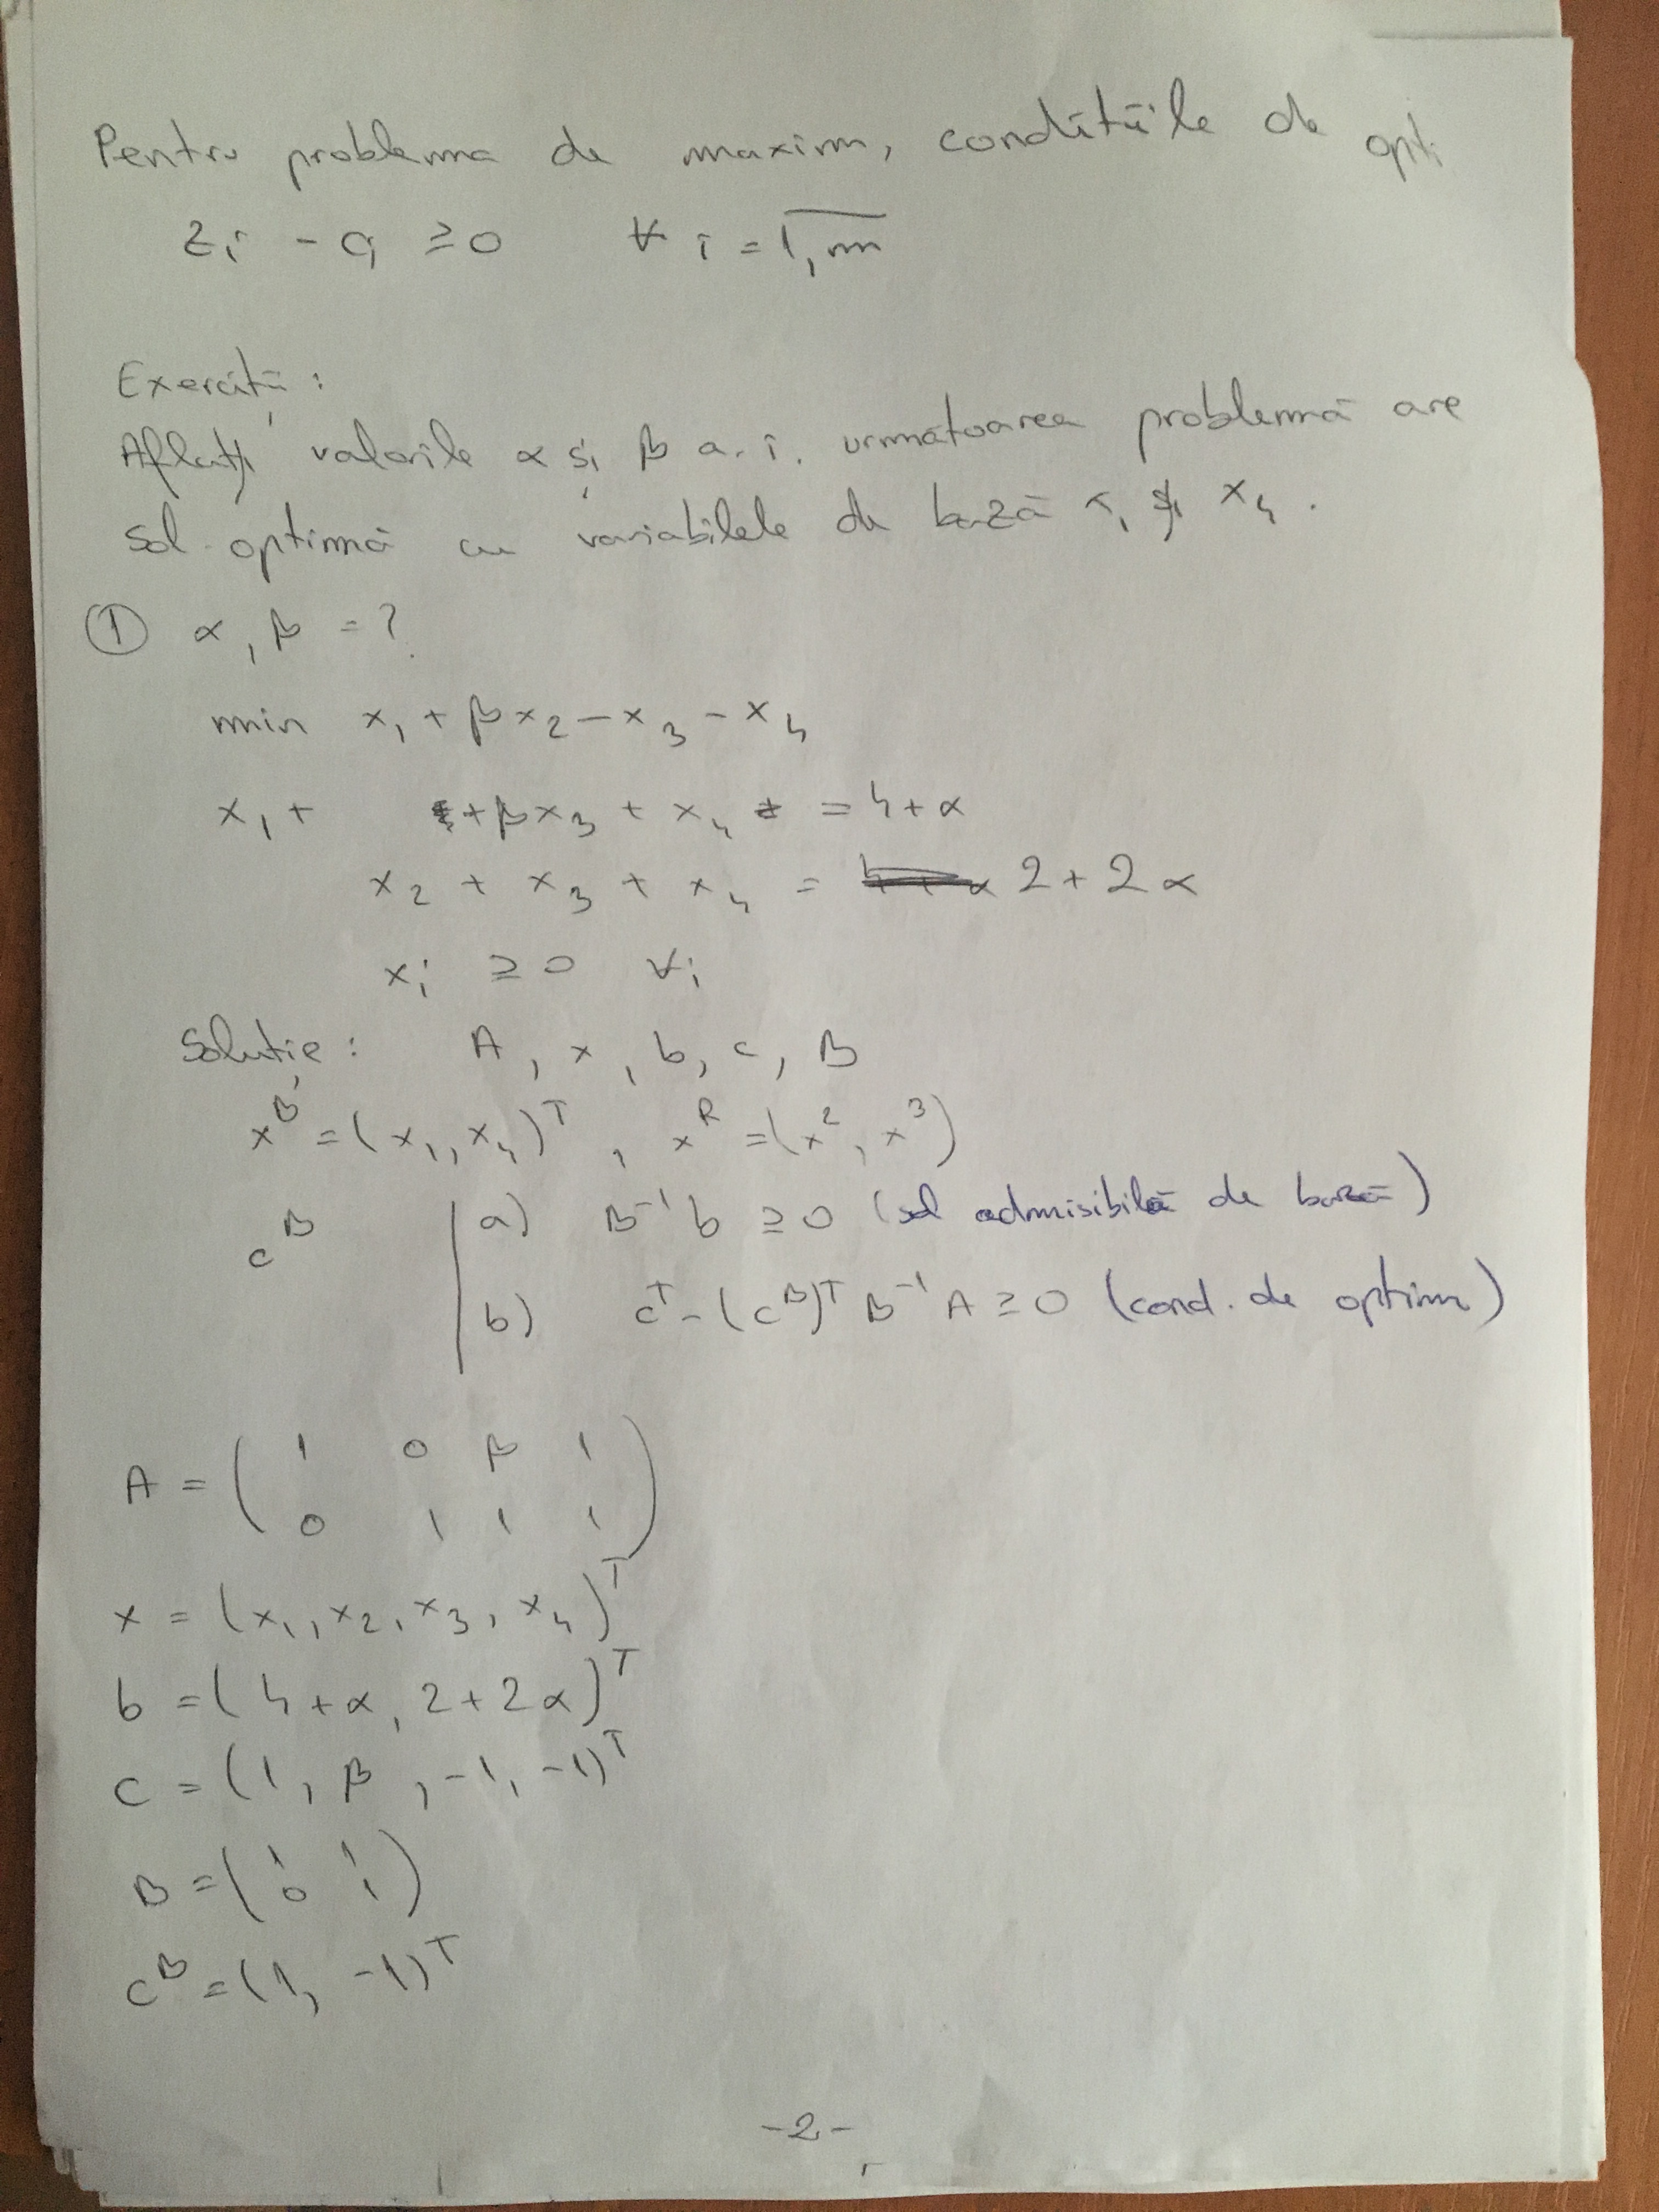 Pentru problema de maxim, condițiile de opti
zi - ci ≥ 0 ∀ i = 1,m
Exerciții:
Aflați valorile α și β a.î. următoarea problemă are
sol optimă cu variabilele de bază x1 și x4.
① α, β = ?
min x1 + βx2 - x3 - x4
x1 + + βx3 + x4 = 4+α
x2 + x3 + x4 = 2+2α
xi ≥ 0 ∀i
Soluție: A, x, b, c, B
x^B = (x1, x4)^T, x^R = (x^2, x^3)
c^B | a) B^-1 b ≥ 0 (sol admisibilă de bază)
b) c^T - (c^B)^T B^-1 A ≥ 0 (cond. de optim)
A = ( 1 0 β 1
0 1 1 1 )
x = (x1, x2, x3, x4)^T
b = (4+α, 2+2α)^T
c = (1, β, -1, -1)^T
B = ( 1 1
0 1 )
c^B = (1, -1)^T
-2-